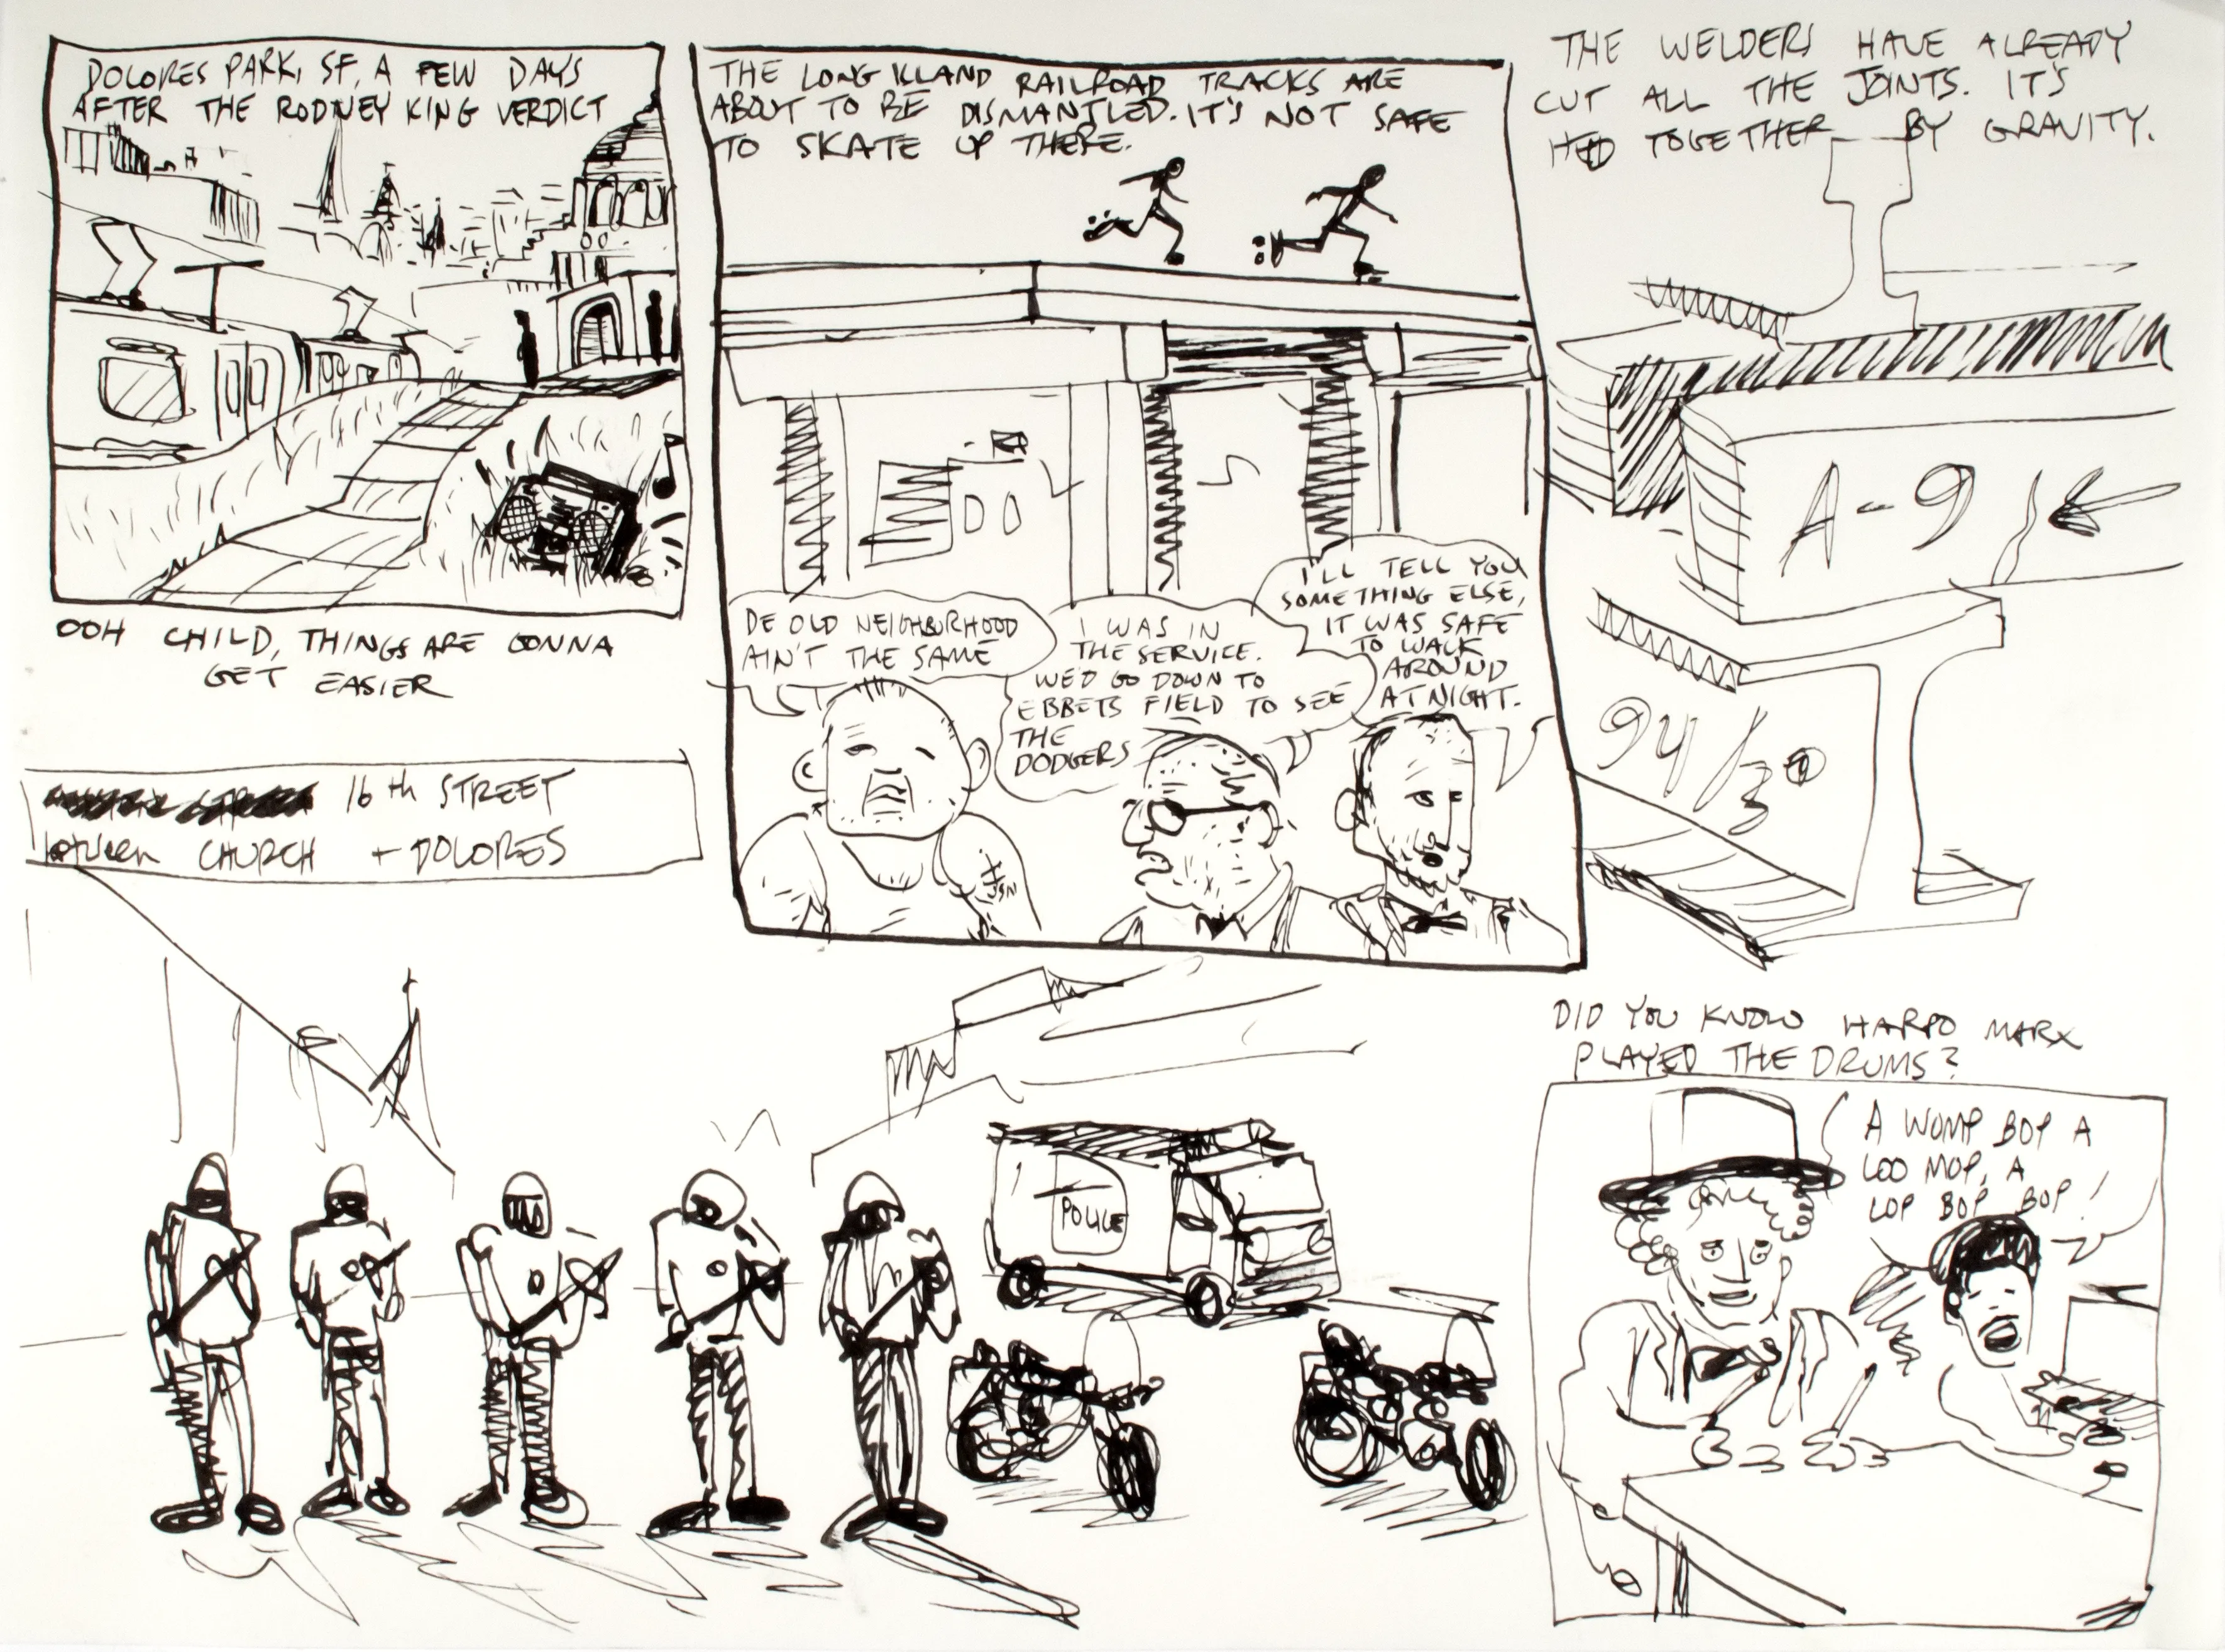 DOLORES PARK, SF, A FEW DAYS
AFTER THE RODNEY KING VERDICT
OOH CHILD, THINGS ARE GONNA
GET EASIER
THE LONG ISLAND RAILROAD TRACKS ARE
ABOUT TO BE DISMANTLED. IT'S NOT SAFE
TO SKATE UP THERE.
DE OLD NEIGHBURHOOD
AIN'T THE SAME
I WAS IN
THE SERVICE.
WE'D GO DOWN TO
EBBETS FIELD TO SEE
THE
DODGERS
I'LL TELL YOU
SOMETHING ELSE,
IT WAS SAFE
TO WALK
AROUND
AT NIGHT.
THE WELDERS HAVE ALREADY
CUT ALL THE JOINTS. IT'S
HELD TOGETHER BY GRAVITY.
A-9
94/30
16th STREET
between CHURCH + DOLORES
POLICE
DID YOU KNOW HARPO MARX
PLAYED THE DRUMS?
A WOMP BOP A
LOO MOP, A
LOP BOP BOP!